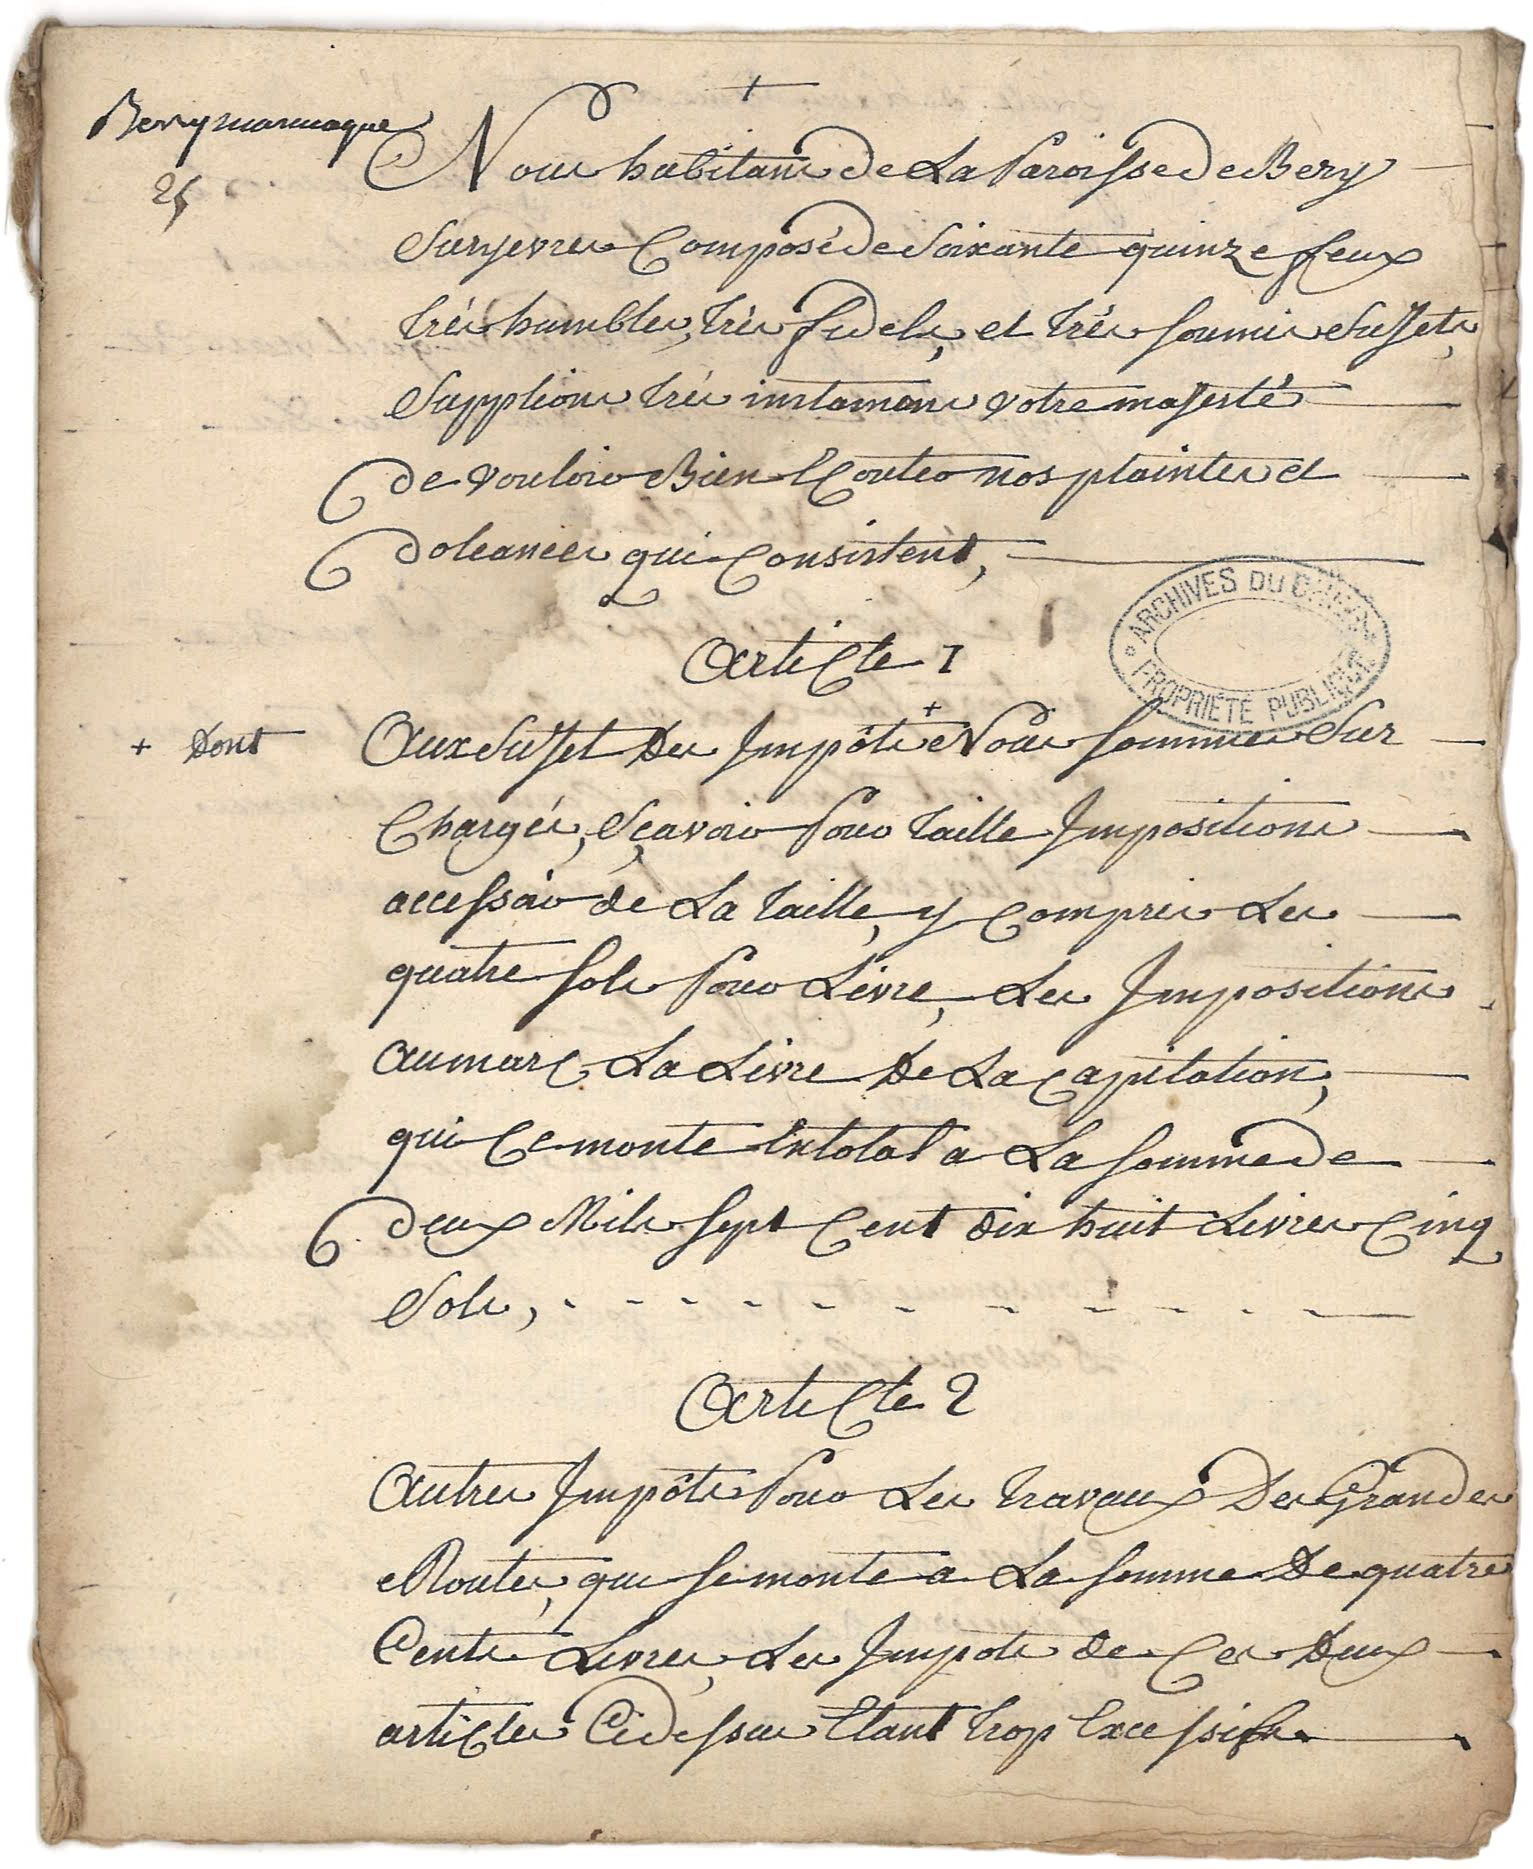 +
Berrymarmagne
25
Nous habitans de La Paroisse de Bery
Suryevres Composé de Soixante quinze feux
très humbles, très fidels, et très soumis Sujets,
Supplions très instamans votre majesté
de vouloir Bien Ecouter nos plaintes et
doleances qui Consistent,
ARCHIVES DU CHER
PROPRIÉTÉ PUBLIQUE
Article 1
+ Dont
Aux Sujet Des Impôts + Nous sommes Sur
Chargés, Sçavoir Pour taille Impositions
accessoir de La taille, y compris Les
quatre sols Pour Livre, Les Impositions
au marc La Livre De La Capitation,
qui Ce monte En total a La somme de
deux Mils sept Cent dix huit Livres Cinq
Sols,
Article 2
Autres Impôts Pour Les travaux Des Grandes
Routes, qui se monte a La somme De quatre
Cents Livres, Les Impots de Ces Deux
articles Cidessus Etant trop Excessifs